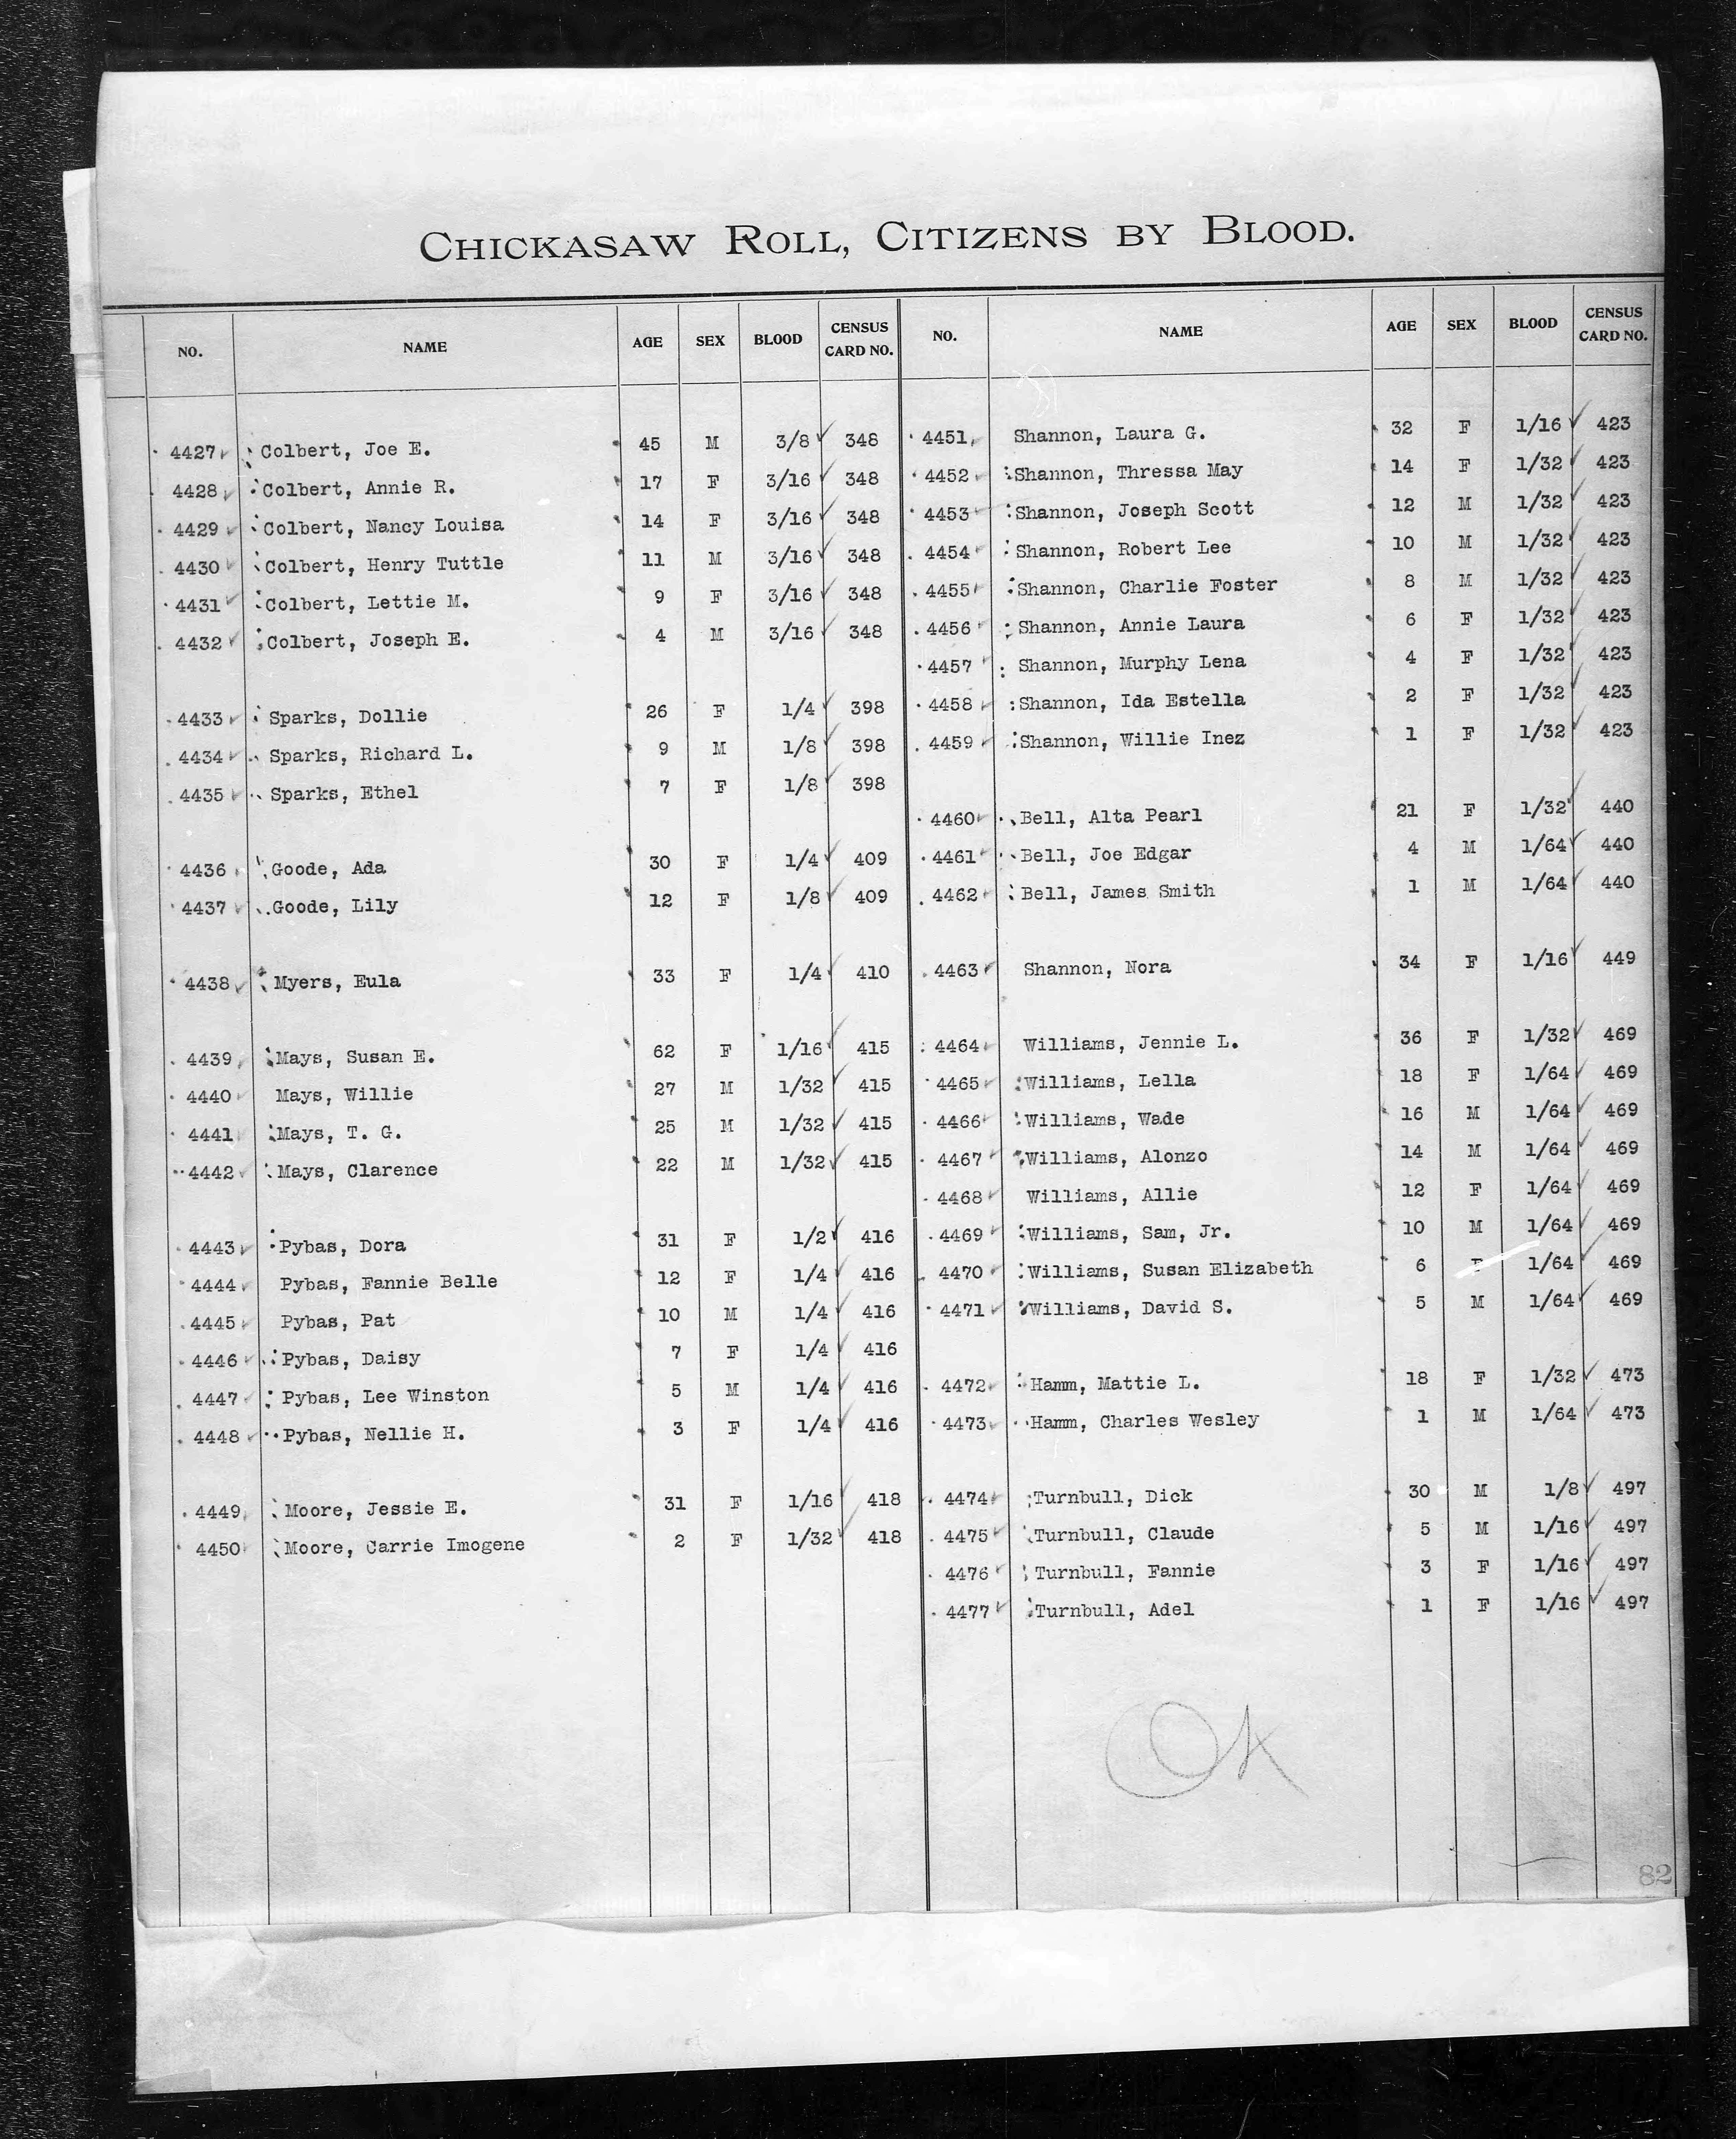 CHICKASAW ROLL, CITIZENS BY BLOOD.
NO. NAME AGE SEX BLOOD CENSUS CARD NO.
4427 Colbert, Joe E. 45 M 3/8 348
4428 Colbert, Annie R. 17 F 3/16 348
4429 Colbert, Nancy Louisa 14 F 3/16 348
4430 Colbert, Henry Tuttle 11 M 3/16 348
4431 Colbert, Lettie M. 9 F 3/16 348
4432 Colbert, Joseph E. 4 M 3/16 348
4433 Sparks, Dollie 26 F 1/4 398
4434 Sparks, Richard L. 9 M 1/8 398
4435 Sparks, Ethel 7 F 1/8 398
4436 Goode, Ada 30 F 1/4 409
4437 Goode, Lily 12 F 1/8 409
4438 Myers, Eula 33 F 1/4 410
4439 Mays, Susan E. 62 F 1/16 415
4440 Mays, Willie 27 M 1/32 415
4441 Mays, T. G. 25 M 1/32 415
4442 Mays, Clarence 22 M 1/32 415
4443 Pybas, Dora 31 F 1/2 416
4444 Pybas, Fannie Belle 12 F 1/4 416
4445 Pybas, Pat 10 M 1/4 416
4446 Pybas, Daisy 7 F 1/4 416
4447 Pybas, Lee Winston 5 M 1/4 416
4448 Pybas, Nellie H. 3 F 1/4 416
4449 Moore, Jessie E. 31 F 1/16 418
4450 Moore, Carrie Imogene 2 F 1/32 418
NO. NAME AGE SEX BLOOD CENSUS CARD NO.
4451 Shannon, Laura G. 32 F 1/16 423
4452 Shannon, Thressa May 14 F 1/32 423
4453 Shannon, Joseph Scott 12 M 1/32 423
4454 Shannon, Robert Lee 10 M 1/32 423
4455 Shannon, Charlie Foster 8 M 1/32 423
4456 Shannon, Annie Laura 6 F 1/32 423
4457 Shannon, Murphy Lena 4 F 1/32 423
4458 Shannon, Ida Estella 2 F 1/32 423
4459 Shannon, Willie Inez 1 F 1/32 423
4460 Bell, Alta Pearl 21 F 1/32 440
4461 Bell, Joe Edgar 4 M 1/64 440
4462 Bell, James Smith 1 M 1/64 440
4463 Shannon, Nora 34 F 1/16 449
4464 Williams, Jennie L. 36 F 1/32 469
4465 Williams, Lella 18 F 1/64 469
4466 Williams, Wade 16 M 1/64 469
4467 Williams, Alonzo 14 M 1/64 469
4468 Williams, Allie 12 F 1/64 469
4469 Williams, Sam, Jr. 10 M 1/64 469
4470 Williams, Susan Elizabeth 6 F 1/64 469
4471 Williams, David S. 5 M 1/64 469
4472 Hamm, Mattie L. 18 F 1/32 473
4473 Hamm, Charles Wesley 1 M 1/64 473
4474 Turnbull, Dick 30 M 1/8 497
4475 Turnbull, Claude 5 M 1/16 497
4476 Turnbull, Fannie 3 F 1/16 497
4477 Turnbull, Adel 1 F 1/16 497
OK
82